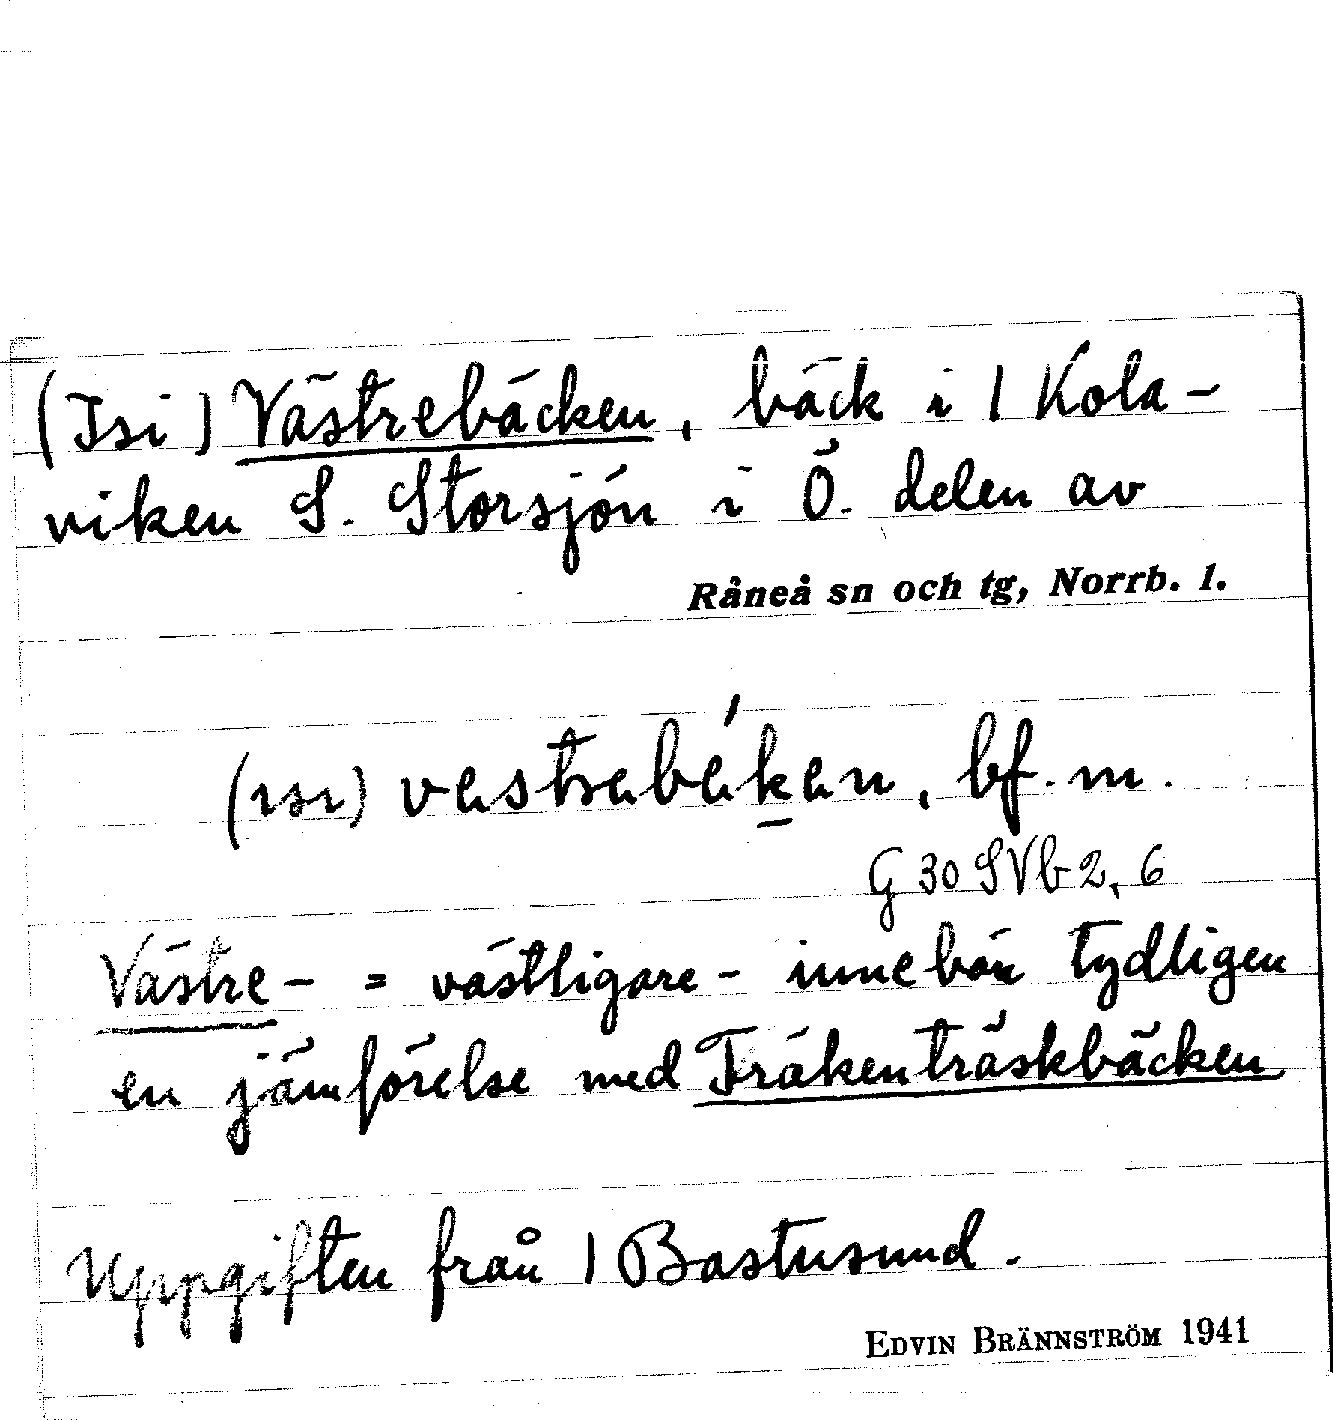 (Isi) Västrebäcken, bäck i / Kola-
viken S. Storsjön i Ö. delen av
Råneå sn och tg, Norrb. l.
(ısı) vestrebéken, bf. m.
G 30 SVb 2, 6
Västre- = västligare - innebär tydligen
en jämförelse med Fräkenträskbäcken
Uppgiften från / Bastusund.
EDVIN BRÄNNSTRÖM 1941